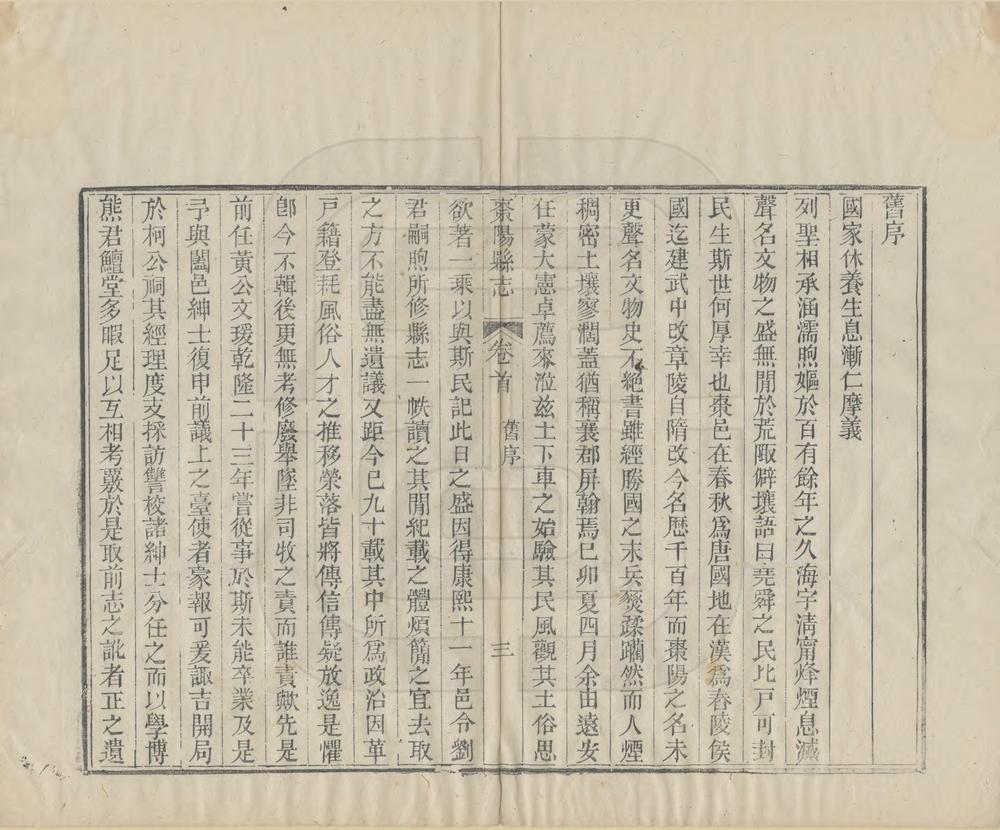 舊序
國家休養生息漸仁摩義
列聖相承涵濡煦嫗於百有餘年之久海宇清甯烽煙息滅
聲名文物之盛無閒於荒陬僻壤語曰堯舜之民比戸可封
民生斯世何厚幸也棗邑在春秋爲唐國地在漢爲舂陵侯
國迄建武中改章陵自隋改今名歷千百年而棗陽之名未
更聲名文物史不絕書雖經勝國之末兵燹蹂躪然而人煙
稠密土壤寥濶蓋猶稱襄郡屏翰焉已卯夏四月余由遠安
任蒙大憲卓薦來涖兹土下車之始驗其民風觀其土俗思
棗陽縣志
卷首
舊序
三
欲著一乘以與斯民記此日之盛因得康熙十一年邑令劉
君嗣煦所修縣志一帙讀之其閒紀載之體煩簡之宜去取
之方不能盡無遺議又距今已九十載其中所爲政治因革
戸籍登耗風俗人才之推移榮落皆將傳信傳疑放逸是懼
卽今不輯後更無考修廢舉墜非司牧之責而誰責歟先是
前任黃公文瑗乾隆二十三年嘗從事於斯未能卒業及是
予與闔邑紳士復申前議上之臺使者蒙報可爰諏吉開局
於柯公祠其經理度支採訪讐校諸紳士分任之而以學博
熊君鱣堂多暇足以互相考覈於是取前志之訛者正之遺